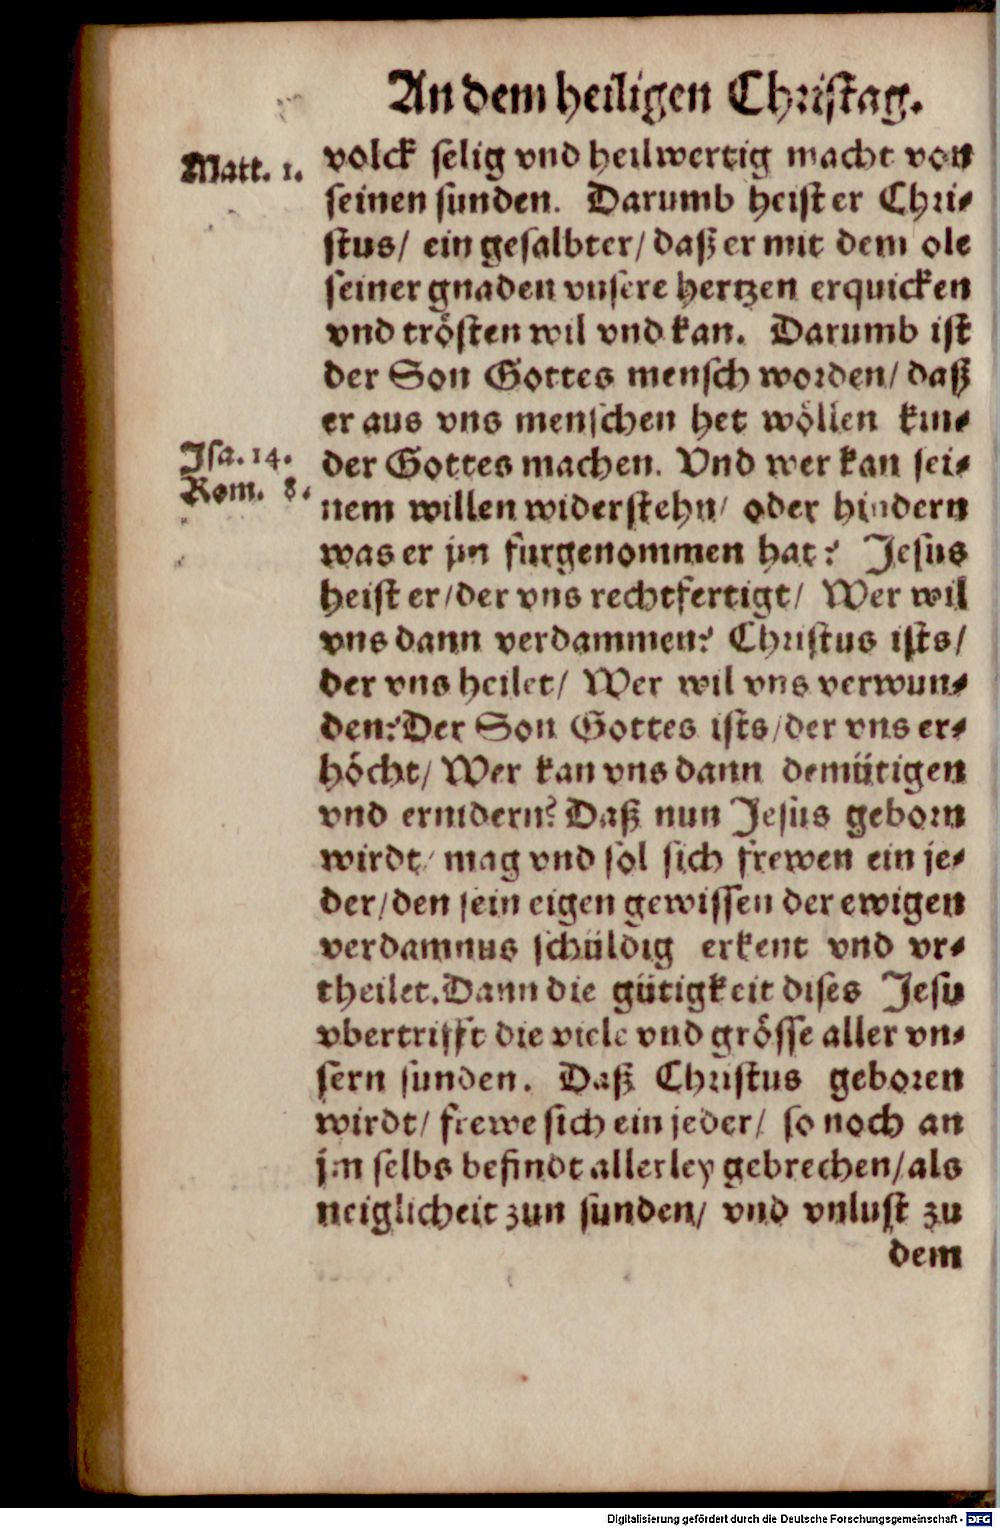 An dem heiligen Christag.
Matt. 1.
volck selig vnd heilwertig macht von
seinen sunden. Darumb heist er Chri-
stus/ ein gesalbter/ daß er mit dem ole
seiner gnaden vnsere hertzen erquicken
vnd trösten wil vnd kan. Darumb ist
der Son Gottes mensch worden/ daß
er aus vns menschen het wöllen kin-
Jsa. 14.
Rom. 8.
der Gottes machen. Vnd wer kan sei-
nem willen widerstehn/ oder hindern
was er jm furgenommen hat? Jesus
heist er/ der vns rechtfertigt/ Wer wil
vns dann verdammen? Christus ists/
der vns heilet/ Wer wil vns verwun-
den? Der Son Gottes ists/ der vns er-
höcht/ Wer kan vns dann demütigen
vnd ernidern? Daß nun Jesus geborn
wirdt/ mag vnd sol sich frewen ein je-
der/ den sein eigen gewissen der ewigen
verdamnus schüldig erkent vnd vr-
theilet. Dann die gütigkeit dises Jesu
vbertrifft die viele vnd grösse aller vn-
sern sunden. Daß Christus geboren
wirdt/ frewe sich ein jeder/ so noch an
jm selbs befindt allerley gebrechen/ als
neiglicheit zun sunden/ vnd vnlust zu
dem
Digitalisierung gefördert durch die Deutsche Forschungsgemeinschaft - DFG